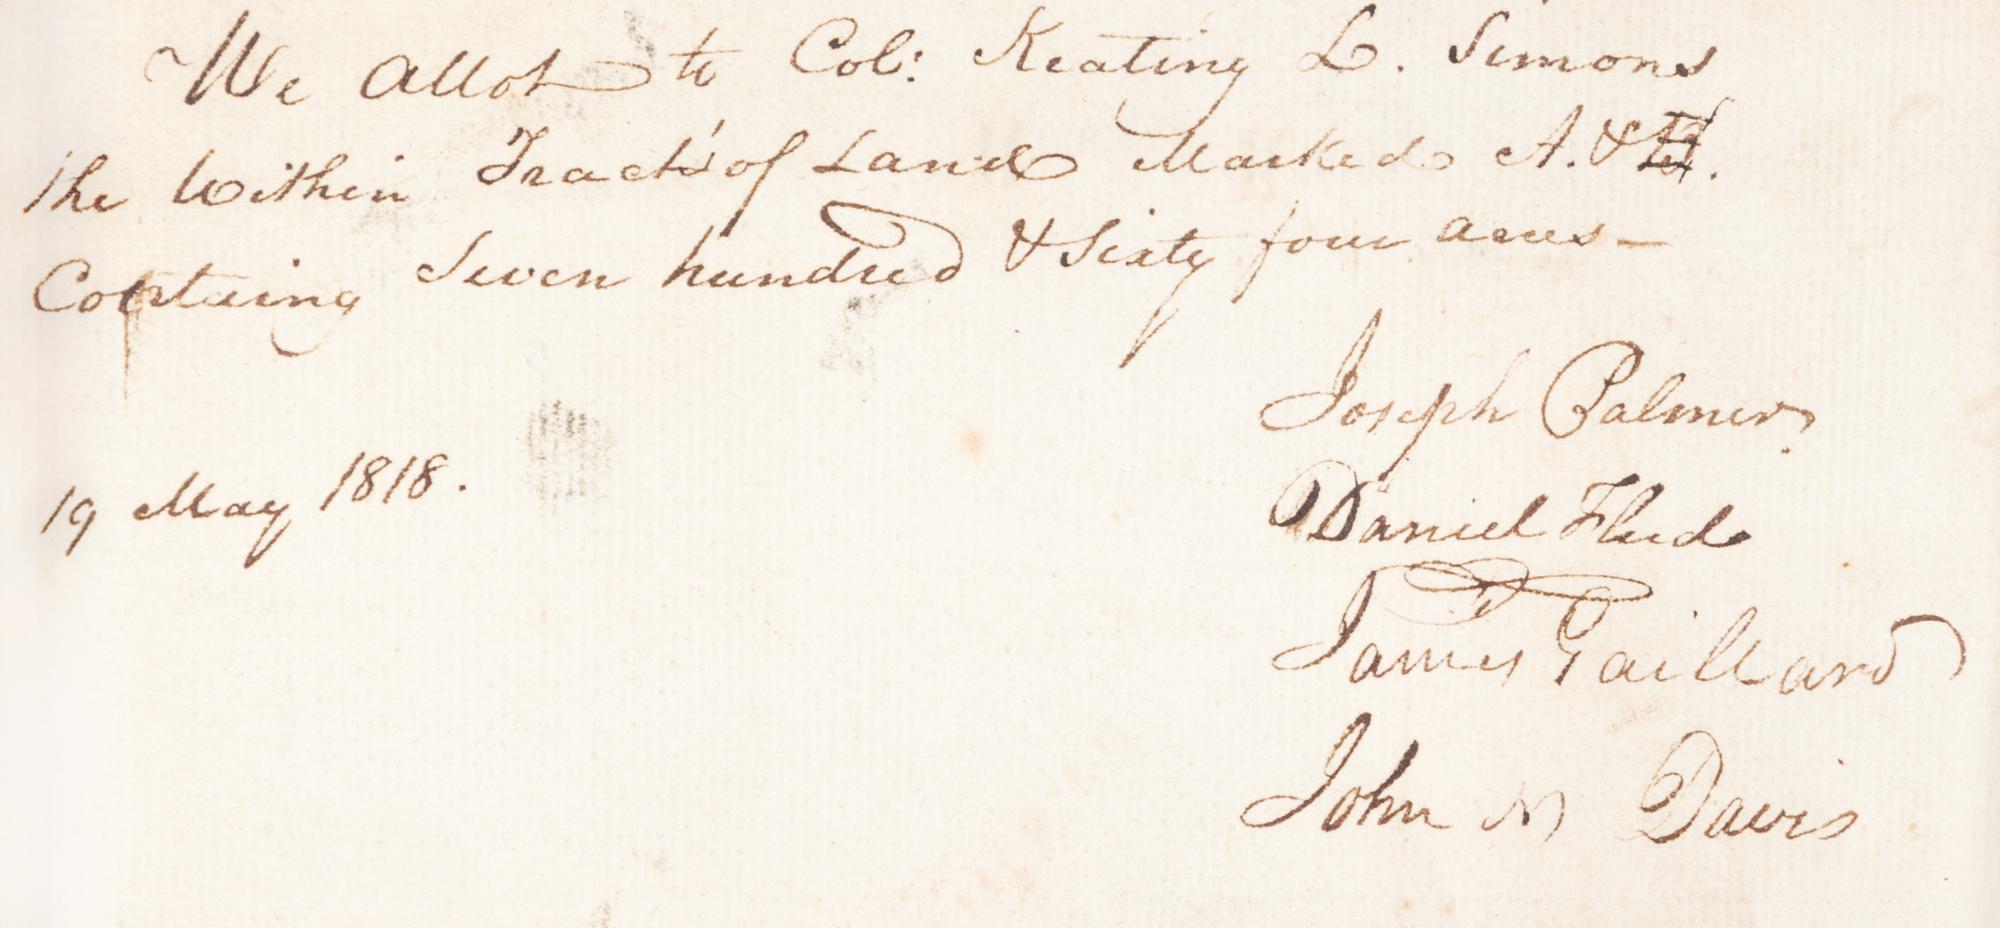 We Allot to Col: Keating L. Simons
the Within Tract of Land Marked A. &
Containg Seven hundred & Sixty four acres—
Joseph Palmer
19 May 1818.
Daniel Flud
James Gaillard
John M Davis